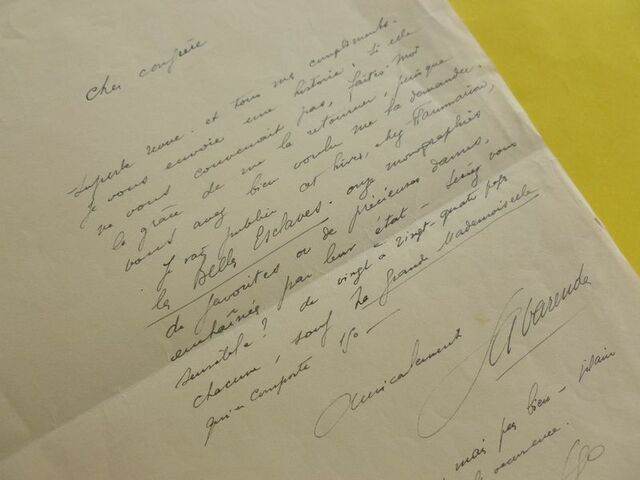 Cher confrère
Superbe revue. et tous mes compliments.
Je vous envoie une histoire; si elle
ne vous convenait pas, faites-moi
la grâce de me la retourner, puisque
vous avez bien voulu me la demander.
Je vais publier cet hiver, chez Flammarion,
les Belles Esclaves. onze monographies
de favorites ou de précieuses dames,
enchaînés par leur état — Seriez vous
sensible? de vingt à vingt-quatre pages
chacune, sauf La Grande Mademoiselle
qui en comporte 150 —
Amicalement
LaVarende
mais pas bien — vilain